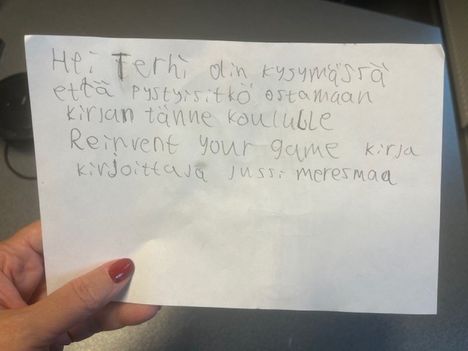 Hei Terhi olin kysymässä
että pystyisitkö ostamaan
kirjan tänne koululle
Reinvent your game kirja
kirjoittaja jussi meresmaa